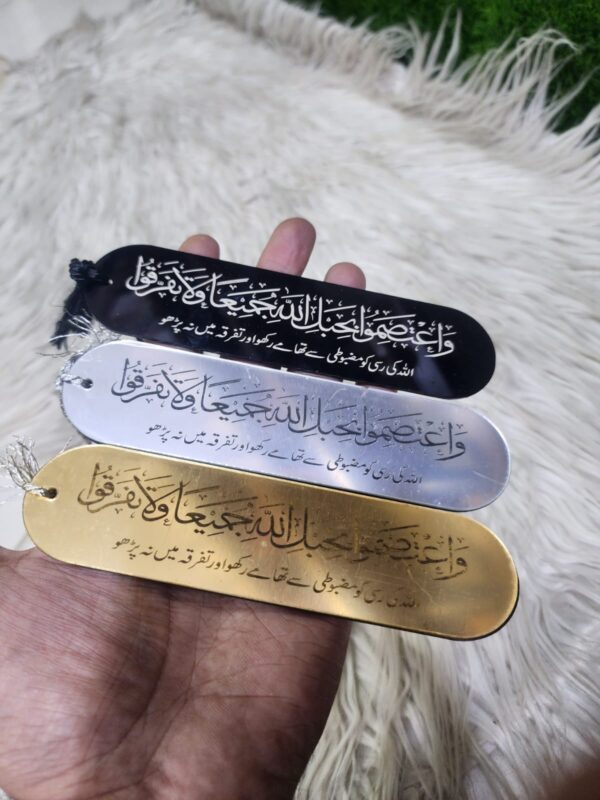 وَاعْتَصِمُوا بِحَبْلِ اللَّهِ جَمِيعًا وَلَا تَفَرَّقُوا
اللہ کی رسی کو مضبوطی سے تھامے رکھو اور تفرقہ میں نہ پڑھو
وَاعْتَصِمُوا بِحَبْلِ اللَّهِ جَمِيعًا وَلَا تَفَرَّقُوا
اللہ کی رسی کو مضبوطی سے تھامے رکھو اور تفرقہ میں نہ پڑھو
وَاعْتَصِمُوا بِحَبْلِ اللَّهِ جَمِيعًا وَلَا تَفَرَّقُوا
اللہ کی رسی کو مضبوطی سے تھامے رکھو اور تفرقہ میں نہ پڑھو